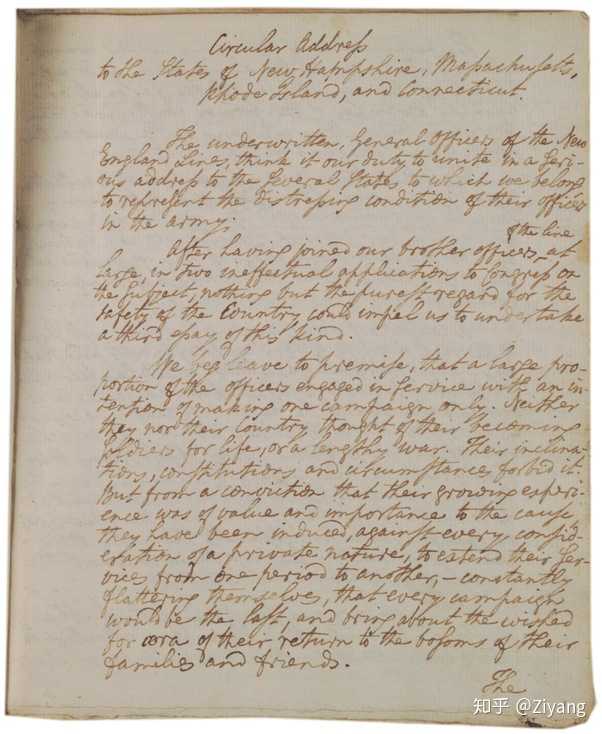 Circular Address
to the States of New Hampshire, Massachusetts,
Rhode Island, and Connecticut.
The underwritten, General Officers of the New
England Line, think it our duty to unite in a seri-
ous address to the several States to which we belong
to represent the distressing condition of their officers
in the army.
of the line
After having joined our brother officers at
large, in two ineffectual applications to Congress on
the subject, nothing but the purest regard for the
safety of the country could impel us to undertake
a third essay of this kind.
We beg leave to premise, that a large pro-
portion of the officers engaged in service with an in-
tention of making one campaign only. Neither
they nor their country thought of their becoming
soldiers for life, or a lengthy war. Their inclina-
tions, constitutions and circumstances forbid it.
But from a conviction that their growing experi-
ence was of value and importance to the cause,
they have been induced, against every consid-
eration of a private nature, to extend their ser-
vices from one period to another, - constantly
flattering themselves, that every campaign
would be the last, and bring about the wished
for æra of their return to the bosoms of their
families and friends.
The
知乎 @Ziyang